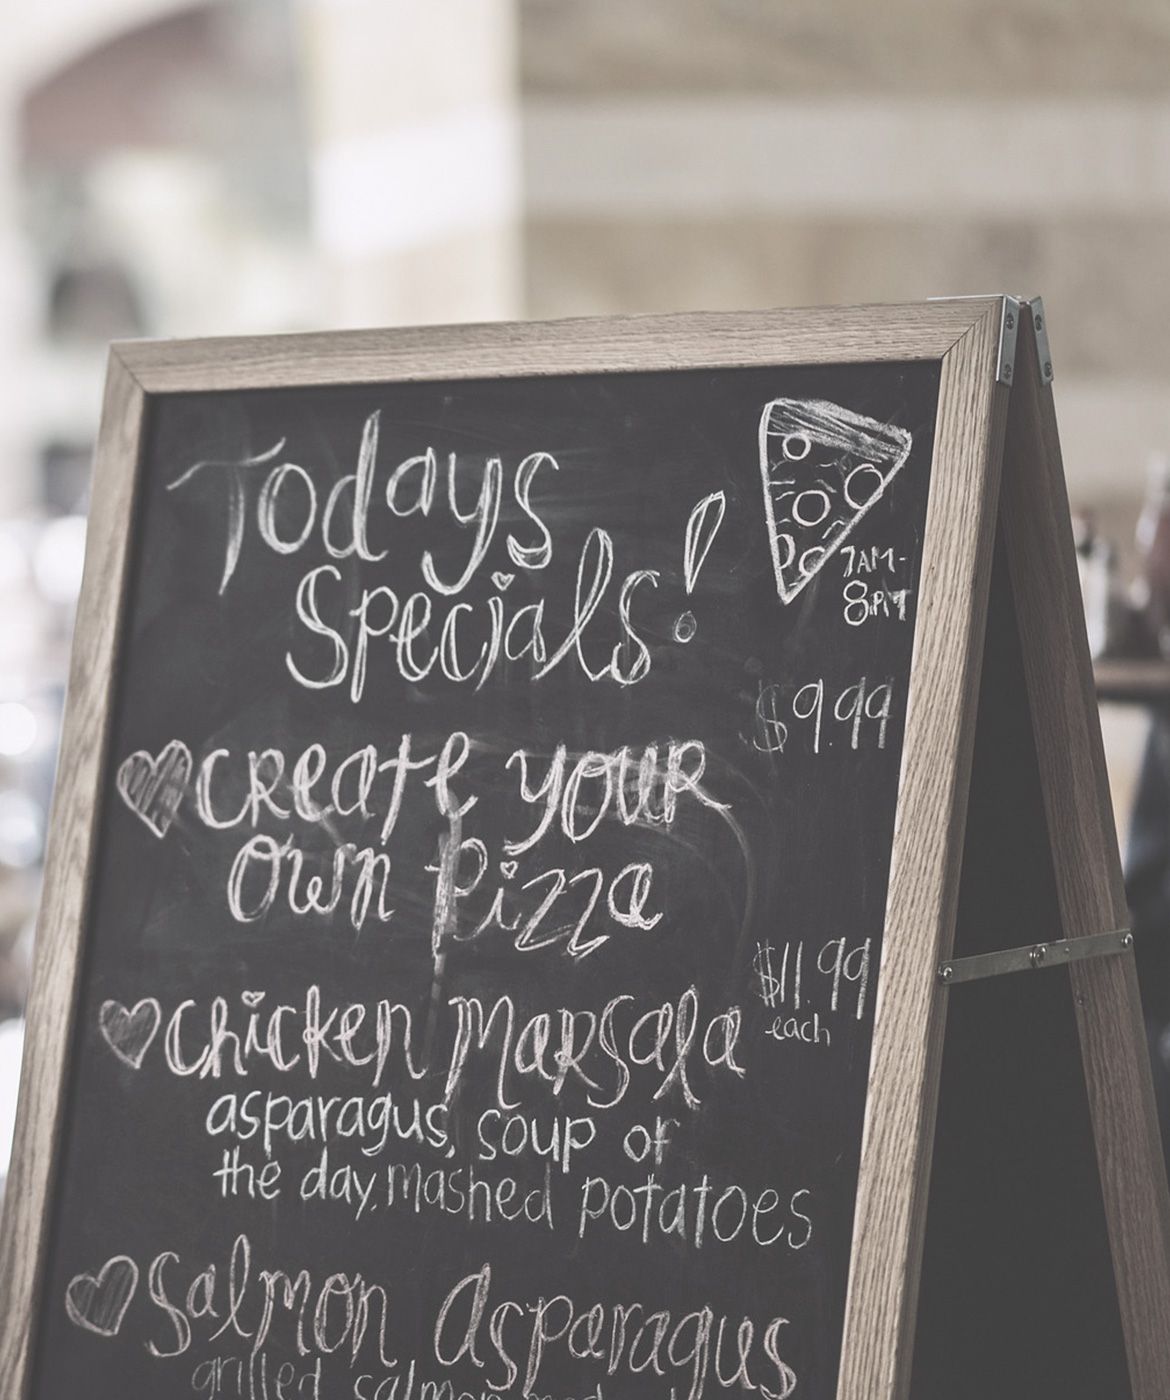 Todays
Specials!
7AM-
8PM
$9.99
create your
own pizza
$11.99
each
chicken marsala
asparagus, soup of
the day, mashed potatoes
Salmon Asparagus
grilled salmon